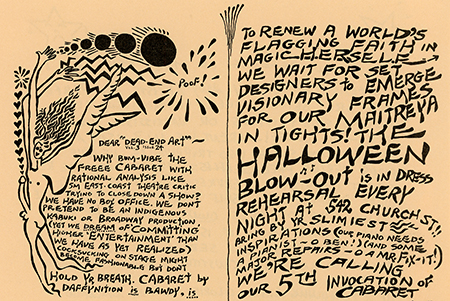 POOF!
DEAR "DEAD-END ART"~
VOL. 3 ISSUE 24
WHY BUM-VIBE THE
FREEE CABARET WITH
RATIONAL ANALYSIS LIKE
SM EAST-COAST THEATRE CRITIC
TRYING TO CLOSE DOWN A SHOW?
WE HAVE NO BOX OFFICE. WE DON'T
PRETEND TO BE AN INDIGENOUS
KABUKI OR BROADWAY PRODUCTION
(YET WE DREAM OF "COMMITTING
HIGHER "ENTERTAINMENT" THAN
WE HAVE AS YET REALIZED)
COCKSUCKING ON STAGE MIGHT
BECOME FASHIONABLE BUT DON'T
HOLD YR BREATH. CABARET by
DAFFYNITION is BAWDY, is
TO RENEW A WORLD'S
FLAGGING FAITH in
MAGIC HERSELF
WE WAIT FOR SET
DESIGNERS to EMERGE
VISIONARY FRAMES
FOR OUR MAITREYA
IN TIGHTS! THE
HALLOWEEN
BLOW-OUT is IN DRESS
REHEARSAL EVERY
NIGHT AT 542 CHURCH ST!!
BRING YR SLIMIEST
INSPIRATIONS (OUR PIANO NEEDS
A PIANIST - O BEN!) (AND SOME
MAJOR REPAIRS - O A MR FIX-IT!)
WE'RE CALLING
OUR 5TH INVOCATION of
CABARET